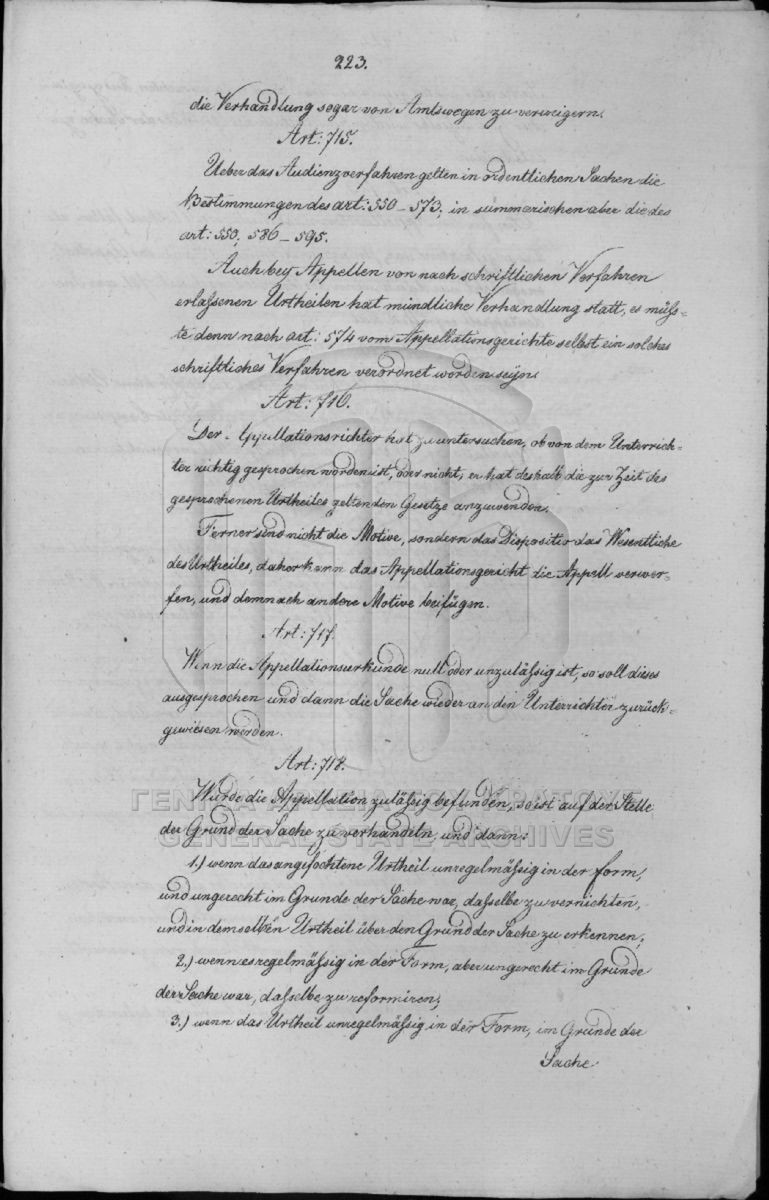 223.
die Verhandlung sogar von Amtswegen zu verweigern.
Art: 715.
Ueber das Audienzverfahren gelten in ordentlichen Sachen die
Bestimmungen des art: 550 – 573; in summarischen aber die des
art: 559, 586 – 595.
Auch bey Appellen von nach schriftlichen Verfahren
erlaßenen Urtheilen hat mündliche Verhandlung statt, es müß-
te denn nach art: 574 vom Appellationsgerichte selbst ein solches
schriftliches Verfahren verordnet worden seyn.
Art: 716.
Der Appellationsrichter hat zu untersuchen, ob von dem Unterrich-
ter richtig gesprochen worden ist, oder nicht; er hat deshalb die zur Zeit des
gesprochenen Urtheiles geltenden Gesetze anzuwenden.
Ferner sind nicht die Motive, sondern das Dispositiv das Wesentliche
des Urtheiles, daher kann das Appellationsgericht die Appell verwer-
fen, und demnach andere Motive beifügen.
Art: 717.
Wenn die Appellationsurkunde null oder unzuläßig ist, so soll dieses
ausgesprochen und dann die Sache wieder an den Unterrichter zurück-
gewiesen werden.
Art: 718.
ΓΕΝΙΚΑ ΑΡΧΕΙΑ ΤΟΥ ΚΡΑΤΟΥΣ
Wurde die Appellation zuläßig befunden, so ist auf der Stelle
der Grund der Sache zu verhandeln, und dann:
GENERAL STATE ARCHIVES
1.) wenn das angefochtene Urtheil unregelmäßig in der Form,
und ungerecht im Grunde der Sache war, daßelbe zu vernichten,
und in demselben Urtheil über den Grund der Sache zu erkennen;
2.) wenn es regelmäßig in der Form, aber ungerecht im Grunde
der Sache war, daßelbe zu reformiren;
3.) wenn das Urtheil unregelmäßig in der Form, im Grunde der
Sache